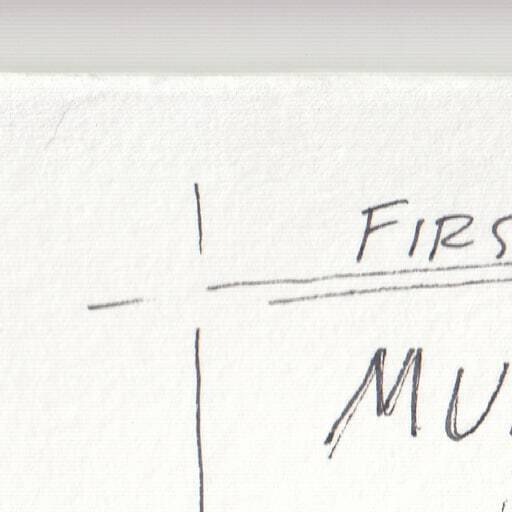 FIRS
MU